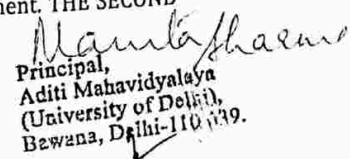 ment. THE SECOND
Mamta Sharma
Principal,
Aditi Mahavidyalaya
(University of Delhi),
Bawana, Delhi-110 039.